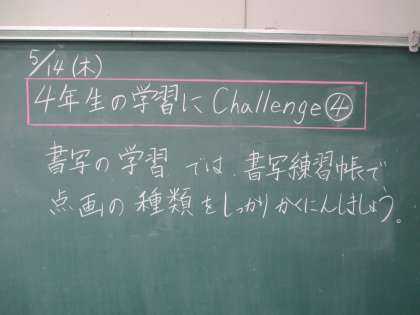 5/14(木)
4年生の学習にChallenge④
書写の学習では、書写練習帳で
点画の種類をしっかりかくにんしましょう。